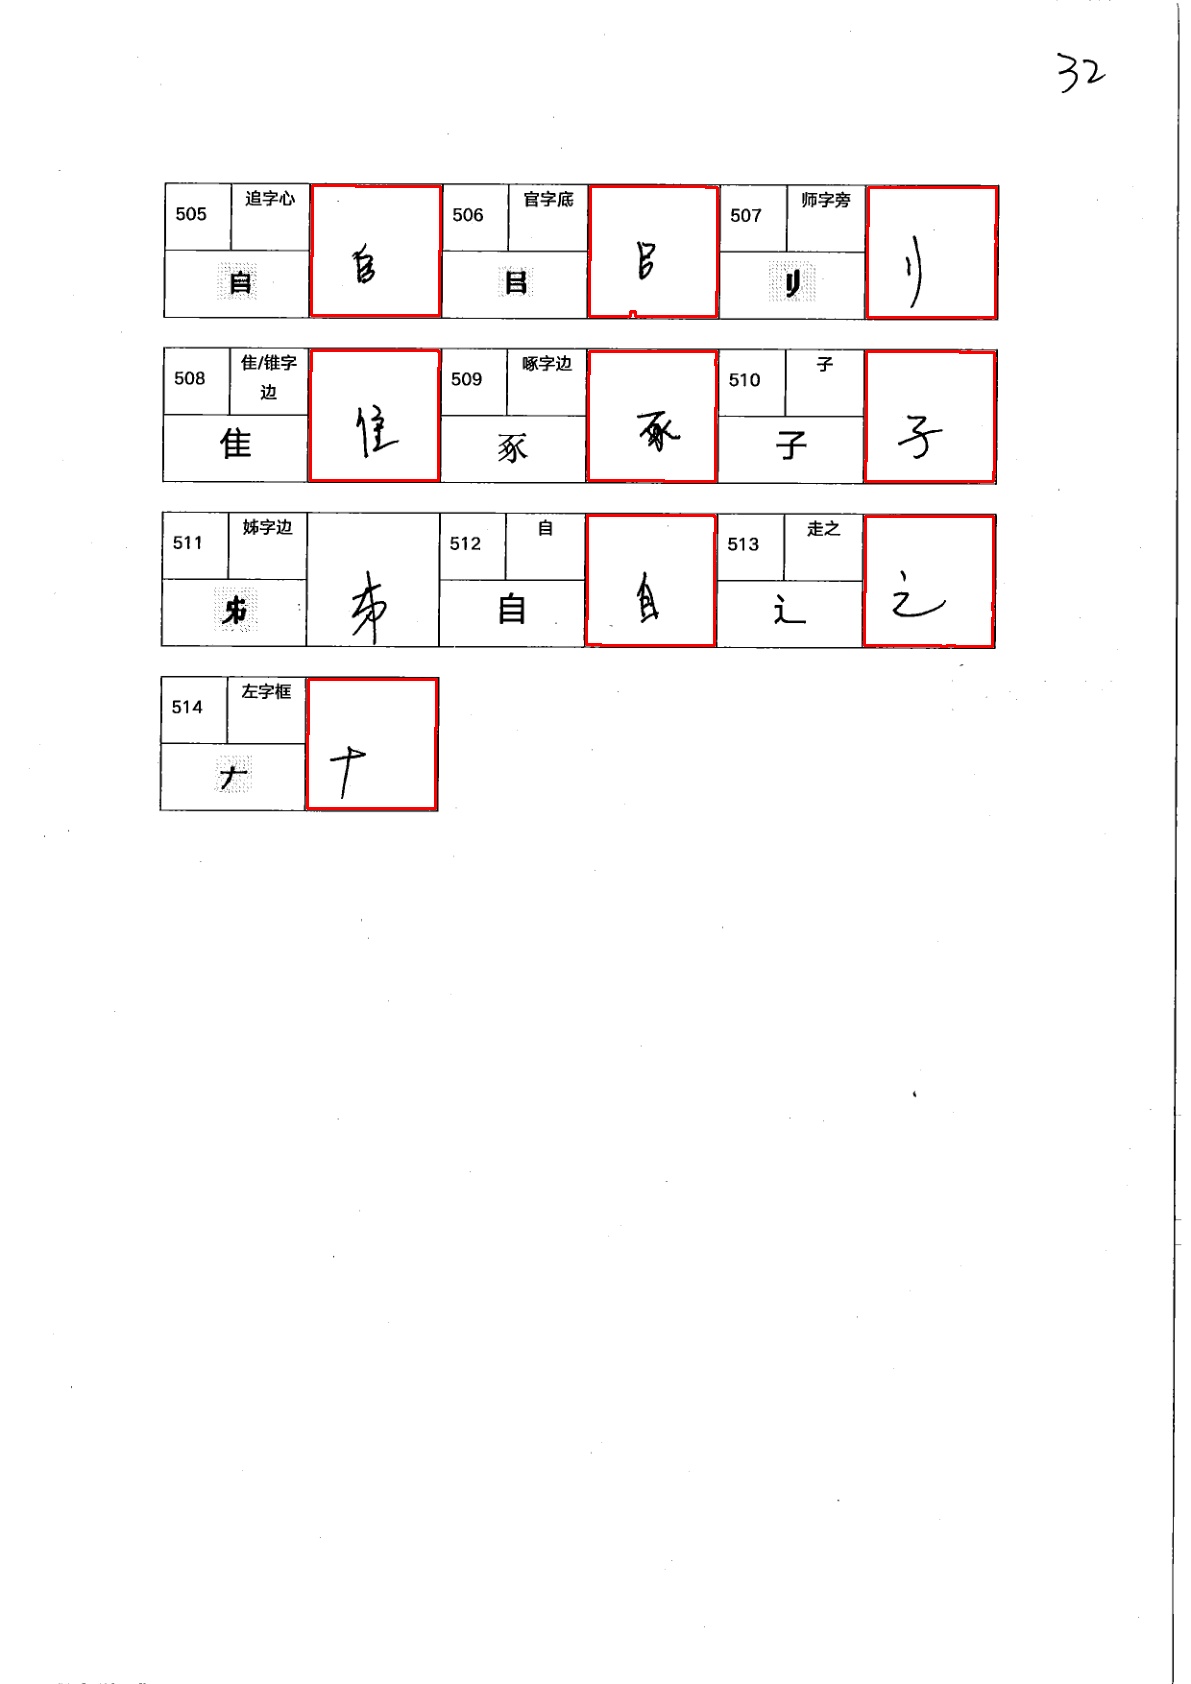 32
505 追字心 𠂤 𠂤
506 官字底 㠯 㠯
507 师字旁 刂 刂
508 隹/锥字边 隹 隹
509 啄字边 豖 豖
510 子 子 子
511 姊字边
512 自 自 自
513 走之 辶 辶
514 左字框 𠂇 𠂇